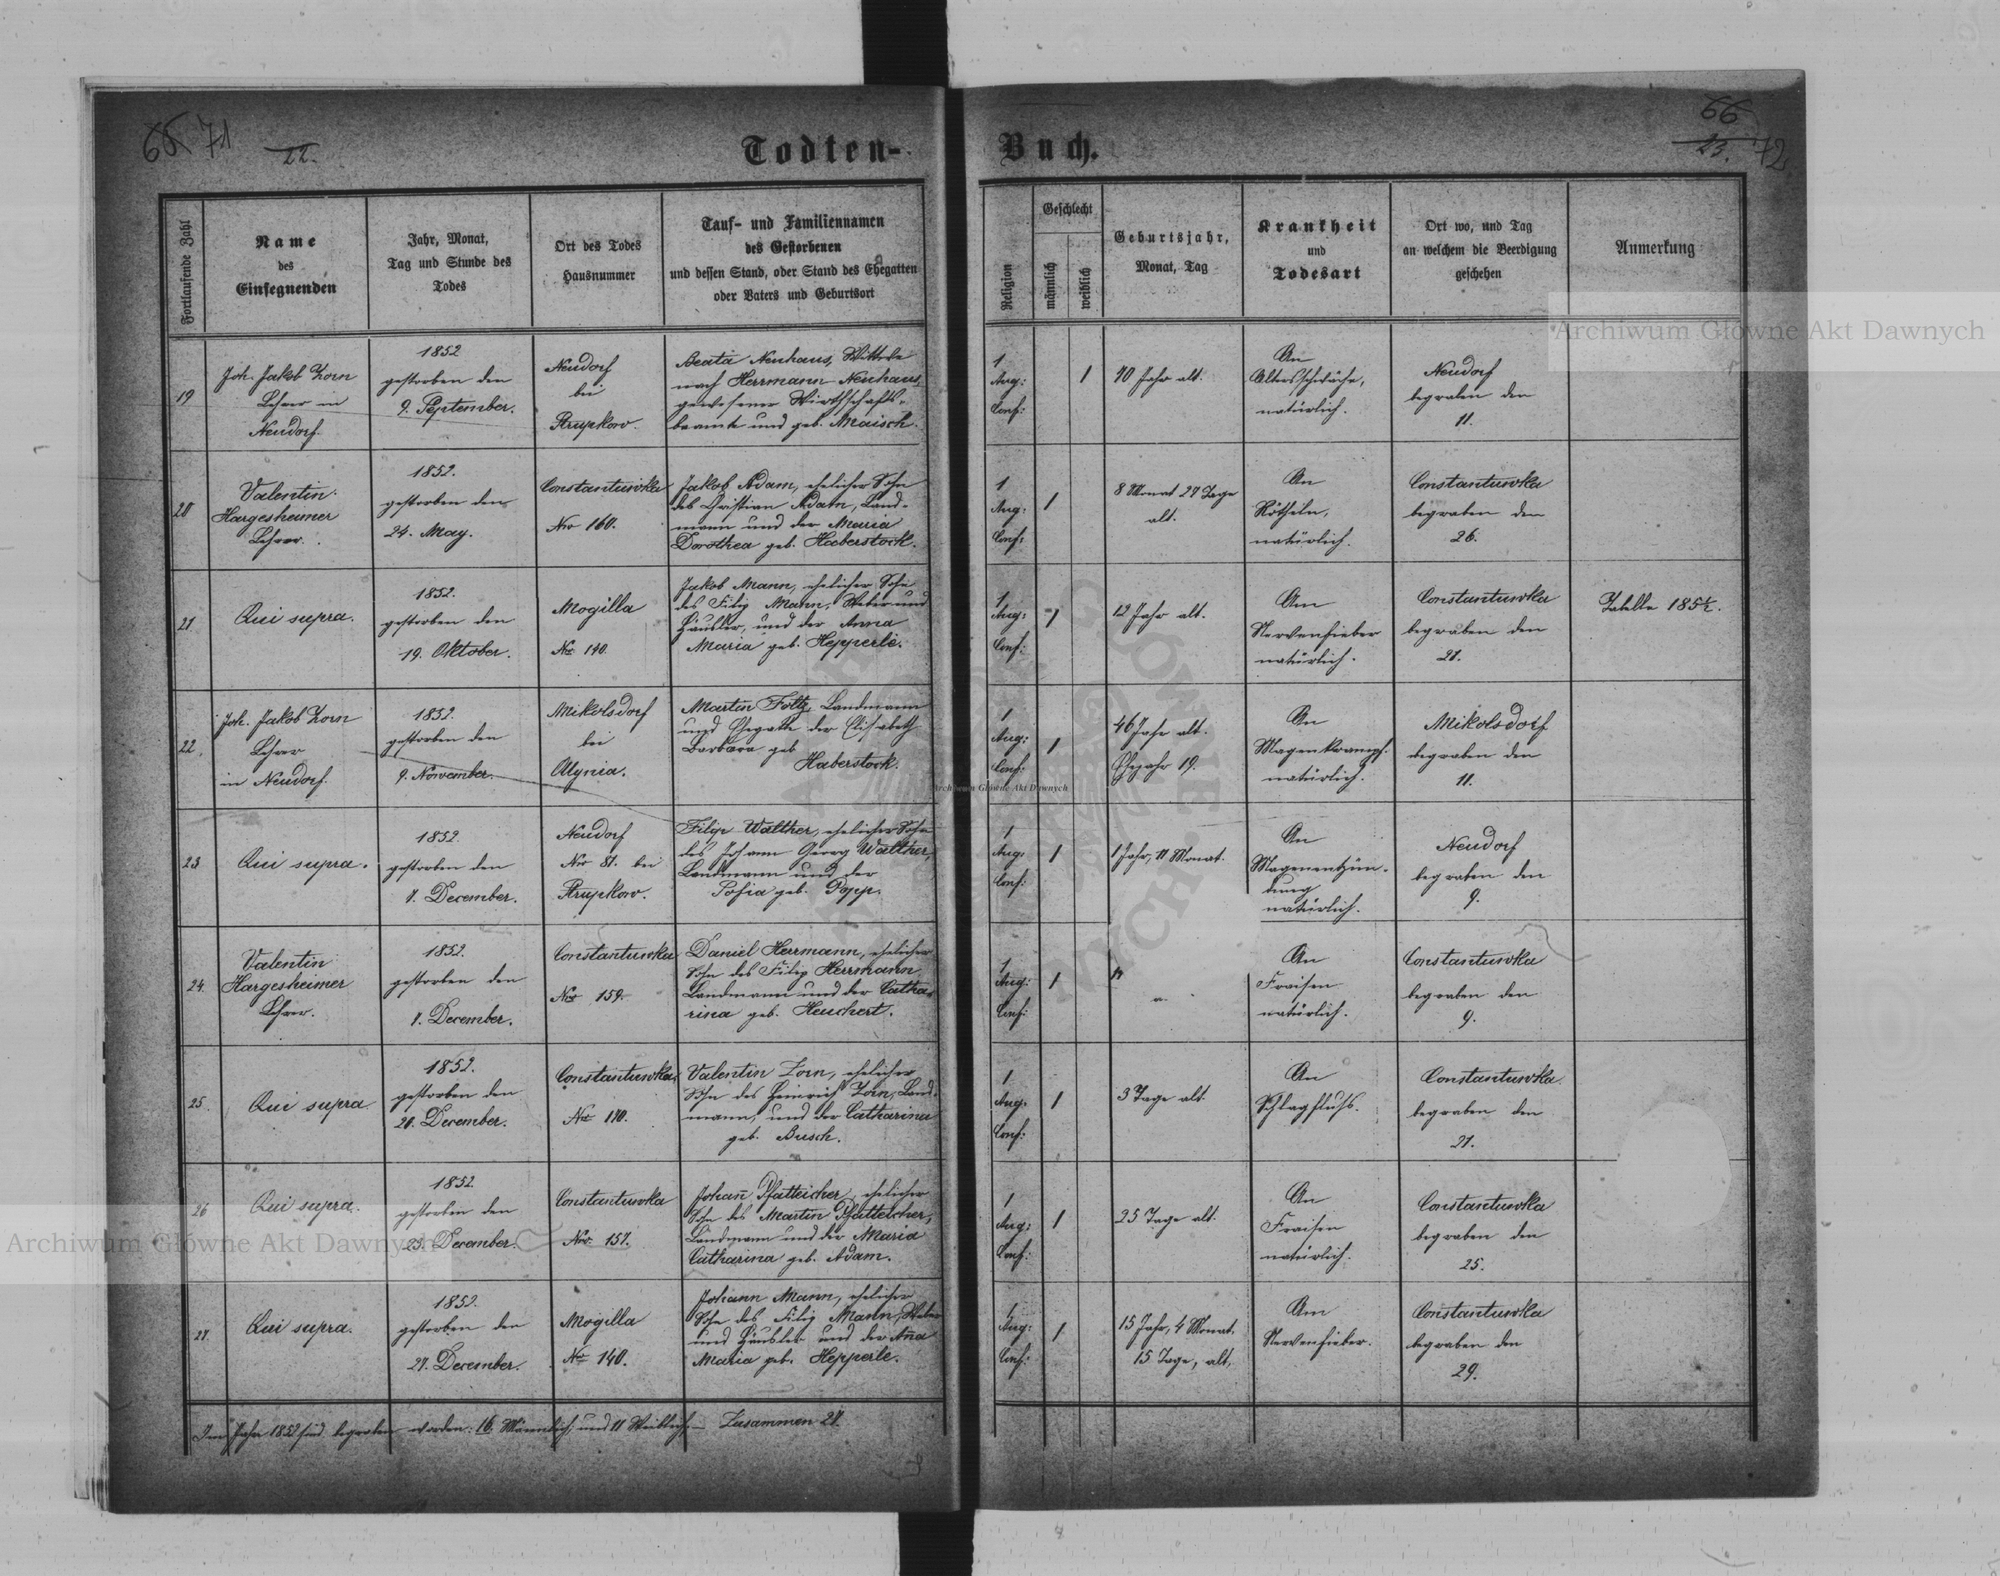 66 71
22.
Todten-
Buch.
66
23. 72
Fortlaufende Zahl
Name
des
Einsegnenden
Jahr, Monat,
Tag und Stunde des
Todes
Ort des Todes
Hausnummer
Tauf- und Familiennamen
des Gestorbenen
und dessen Stand, oder Stand des Ehegatten
oder Vaters und Geburtsort
Religion
Geschlecht
männlich
weiblich
Geburtsjahr,
Monat, Tag
Krankheit
und
Todesart
Ort wo, und Tag
an welchem die Beerdigung
geschehen
Anmerkung
19
Joh. Jakob Zorn
Lehrer in
Neudorf.
1852
gestorben den
9. September.
Neudorf
bei
Krupkow.
Beata Neuhaus, Wittwe
nach Herrmann Neuhaus,
gewesener Wirthschafts-
beamte und geb. Maisch.
1
Aug:
Conf:
1
70 Jahr alt.
An
Altersschwäche,
natürlich.
Neudorf
begraben den
11.
20
Valentin
Hargesheimer
Lehrer.
1852.
gestorben den
24. May.
Constantuwka
Nro 160.
Jakob Adam, ehelicher Sohn
des Christian Adam, Land-
mann und der Maria
Dorothea geb. Haberstock.
1
Aug:
Conf:
1
8 Monat 27 Tage
alt.
An
Rötheln,
natürlich.
Constantuwka
begraben den
26.
21
Qui supra.
1852.
gestorben den
19. Oktober.
Mogilla
Nro 140.
Jakob Mann, ehelicher Sohn
des Filip Mann, Weber und
Häusler, und der Anna
Maria geb. Hepperle.
1
Aug:
Conf:
1
12 Jahr alt.
Am
Nervenfieber
natürlich.
Constantuwka
begraben den
21.
Tabelle
22.
Joh. Jakob Zorn
Lehrer
in Neudorf.
1852.
gestorben den
9. November.
Mikolsdorf
bei
Olynia.
Martin Foltz, Landmann
und Ehegatte der Elisabeth
Barbara geb
Haberstock.
1
Aug:
Conf:
1
46 Jahr alt.
Ehejahr 19.
An
Magenkrampf.
natürlich.
Mikolsdorf
begraben den
11.
23
Qui supra.
1852.
gestorben den
7. December.
Neudorf
Nro 81. bei
Krupkow.
Filip Walther, ehelicher Sohn
des Johann Georg Walther,
Landmann und der
Sofia geb. Popp.
1
Aug:
Conf:
1
1 Jahr, 11 Monat.
An
Magenentzün-
dung
natürlich.
Neudorf
begraben den
9.
24.
Valentin
Hargesheimer
Lehrer.
1852.
gestorben den
7. December.
Constantuwka
Nro 159.
Daniel Herrmann, ehelicher
Sohn des Filip Herrmann
Landmann und der Catha-
rina geb. Heuchert.
1
Aug:
Conf:
1
An
Fraisen
natürlich.
Constantuwka
begraben den
9.
25.
Qui supra
1852.
gestorben den
20. December.
Constantuwka,
Nro 170.
Valentin Zorn, ehelicher
Sohn des Heinrich Zorn, Land-
mann, und der Catharina
geb. Busch.
1
Aug:
Conf:
1
3 Tage alt.
An
Schlagfluss.
Constantuwka
begraben den
21.
26
Qui supra.
1852.
gestorben den
23. December.
Constantuwka
Nro. 157.
Johan̄ Pfatteicher, ehelicher
Sohn des Martin Pfatteicher,
Landmann und der Maria
Catharina geb. Adam.
1
Aug:
Conf:
1
25 Tage alt.
An
Fraisen
natürlich.
Constantuwka
begraben den
25.
27.
Qui supra.
1852.
gestorben den
27. December.
Mogilla
Nro 140.
Johann Mann, ehelicher
Sohn des Filip Mann, Weber
und Häusler und der An̄a
Maria geb. Hepperle.
1
Aug:
Conf:
1
15 Jahr, 4 Monat,
15 Tage, alt,
Am
Nervenfieber.
Constantuwka
begraben den
29.
Im Jahr 1852 sind begraben worden: 16 Männlich, und 11 Weiblich. — Zusammen 27.
Archiwum Główne Akt Dawnych
Archiwum Główne Akt Dawnych
Archiwum Główne Akt Dawnych